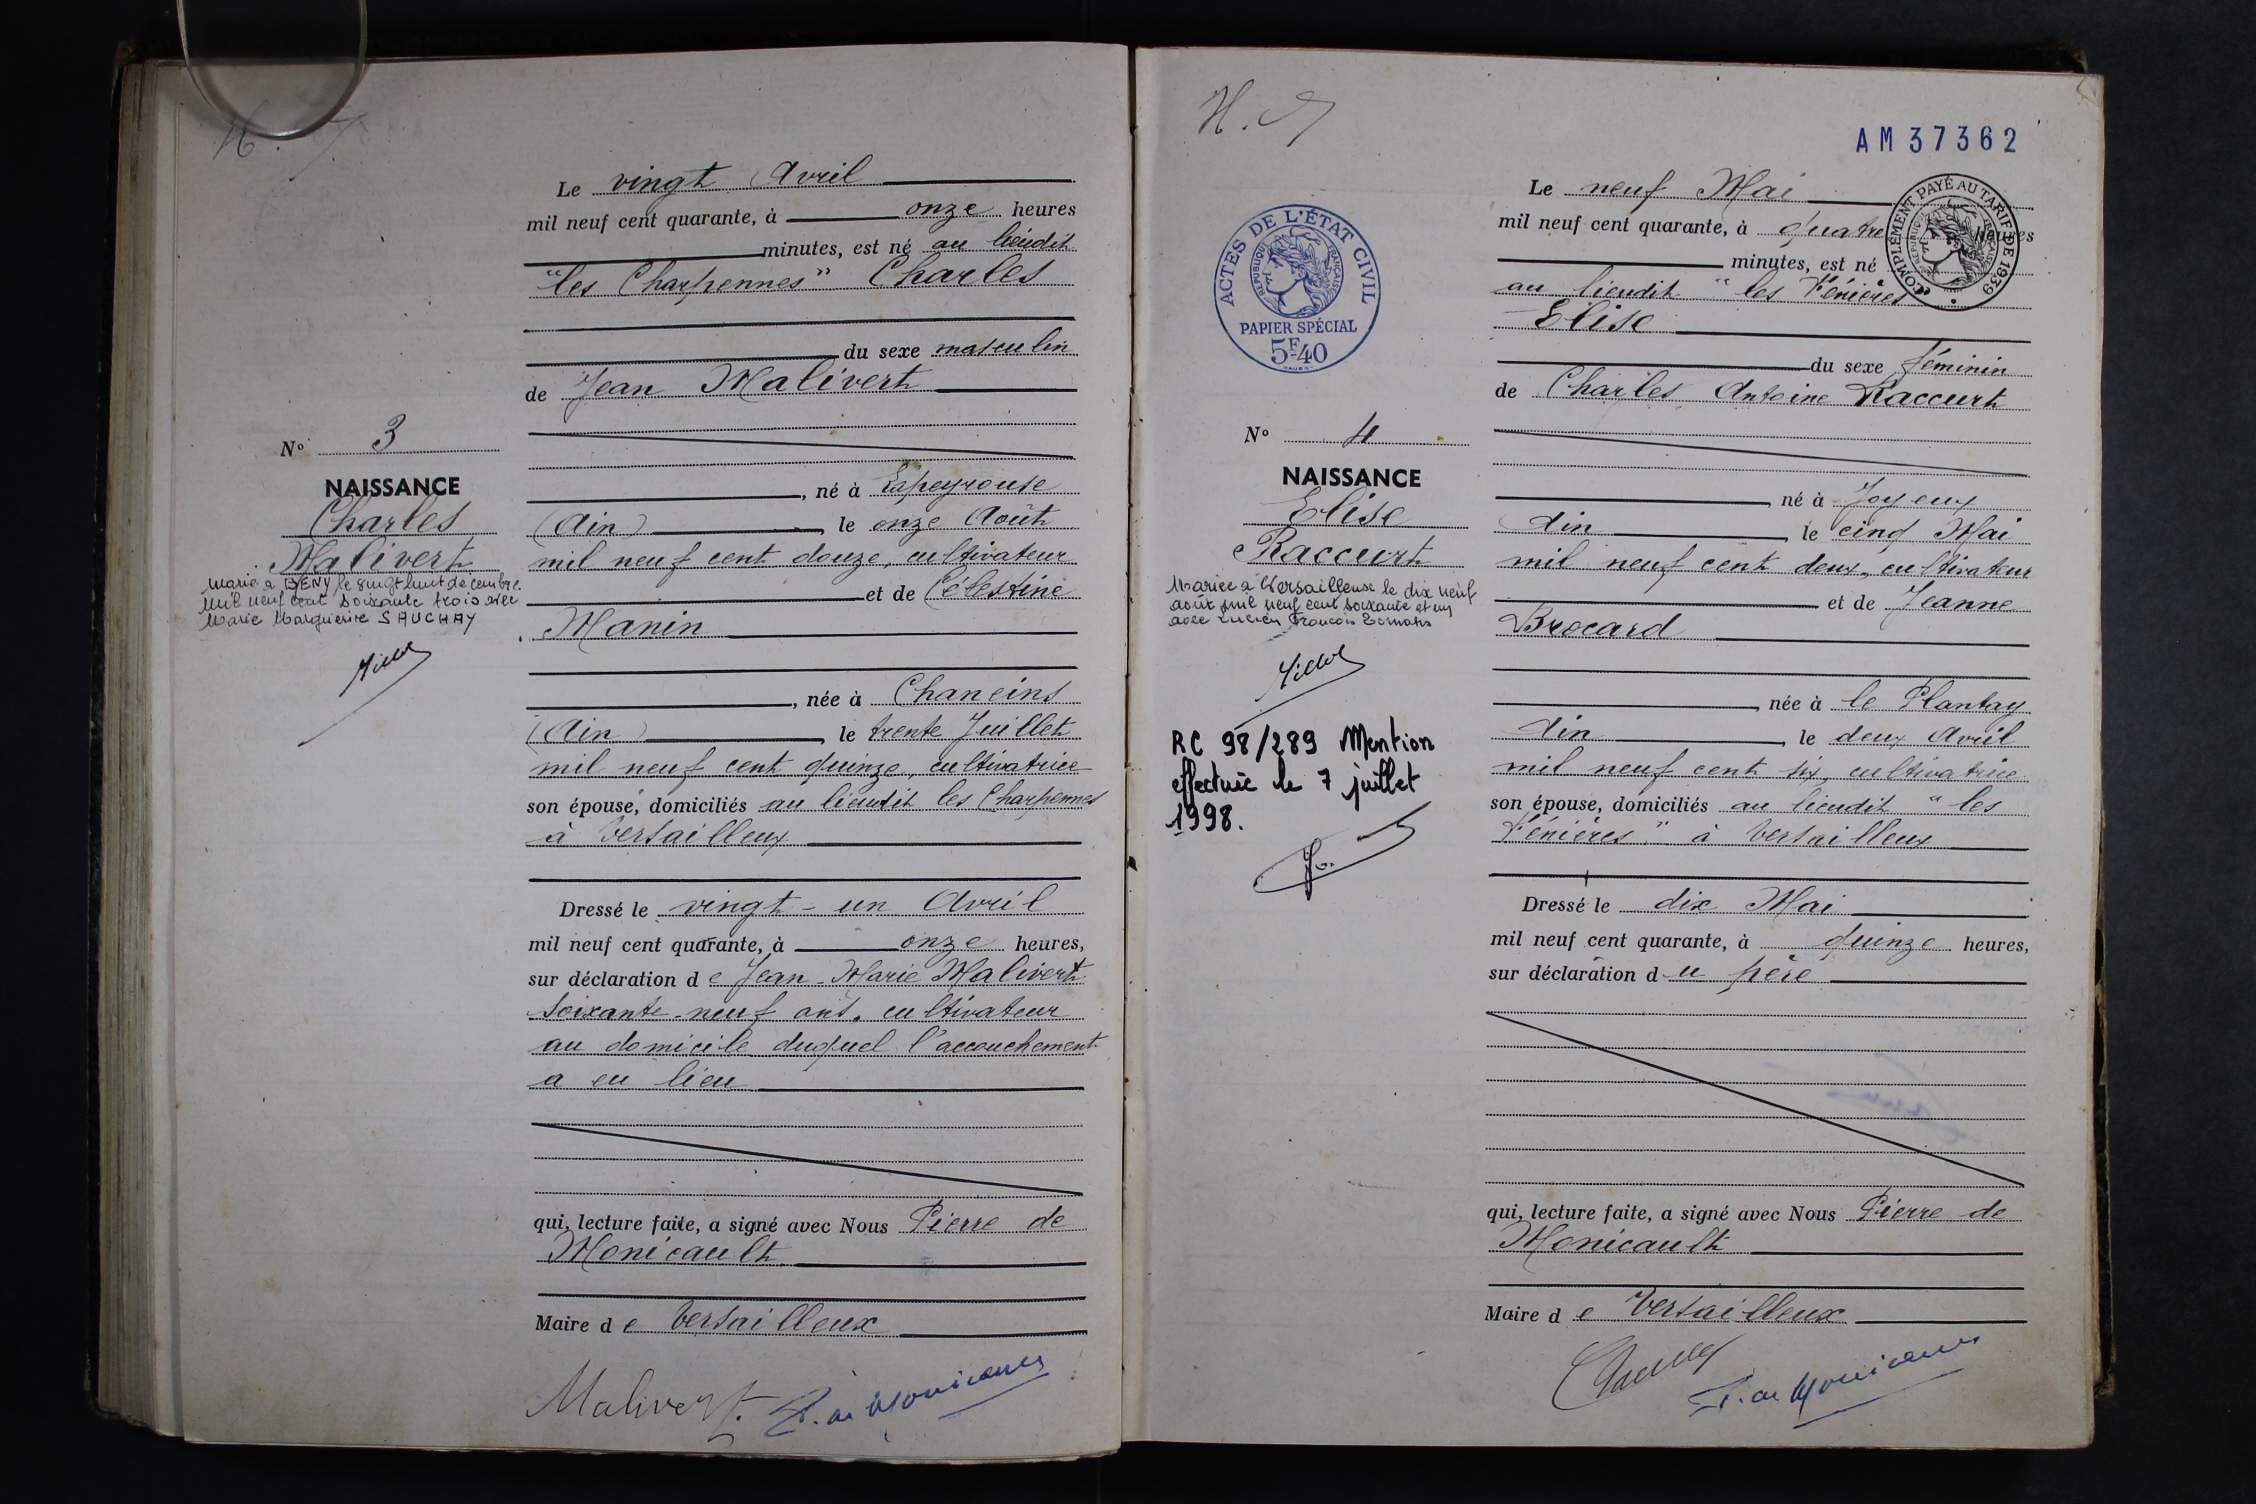 Le vingt Avril
mil neuf cent quarante, à onze heures
minutes, est né au lieudit
"les Charpennes" Charles
du sexe masculin
de Jean Malivert
, né à Lapeyrouse
(Ain) , le onze Août
mil neuf cent douze, cultivateur
et de Célestine
Manin
, née à Chaneins
(Ain) , le trente Juillet
mil neuf cent quinze, cultivatrice
son épouse, domiciliés au lieudit les Charpennes
à Versailleux
Dressé le vingt-un Avril
mil neuf cent quarante, à onze heures,
sur déclaration de Jean-Marie Malivert
soixante-neuf ans, cultivateur
au domicile duquel l'accouchement
a eu lieu
qui, lecture faite, a signé avec Nous Pierre de
Monicault
Maire de Versailleux
Malivert. P. de Monicault
N° 3
NAISSANCE
Charles
Malivert
Marié à BENY le vingt huit décembre
mil neuf cent soixante trois avec
Marie Marguerite SAUCHAY
H.
AM37362
ACTES DE L'ÉTAT CIVIL
RÉPUBLIQUE FRANÇAISE
PAPIER SPÉCIAL
5F.40
COMPLÉMENT PAYÉ AU TARIF DE 1939
RÉPUBLIQUE FRANÇAISE
N° 4
NAISSANCE
Elise
Raccurt
Mariée à Versailleux le dix neuf
août mil neuf cent soixante et un
avec Lucien François
RC 98/289 Mention
effectuée le 7 juillet
1998.
Le neuf Mai
mil neuf cent quarante, à quatre heures
minutes, est né
au lieudit "les Vénières
Elise
du sexe féminin
de Charles Antoine Raccurt
né à Joyeux
Ain , le cinq Mai
mil neuf cent deux, cultivateur
et de Jeanne
Brocard
, née à le Plantay
Ain , le deux Avril
mil neuf cent six, cultivatrice
son épouse, domiciliés au lieudit "les
Vénières" à Versailleux
Dressé le dix Mai
mil neuf cent quarante, à quinze heures,
sur déclaration du père
qui, lecture faite, a signé avec Nous Pierre de
Monicault
Maire de Versailleux
P. de Monicault